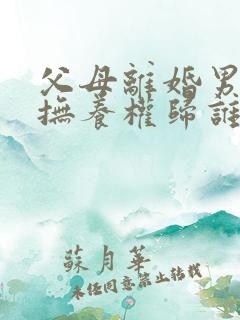 父母離婚男
撫養權歸誰
蘇月華
未經同意禁止轉載